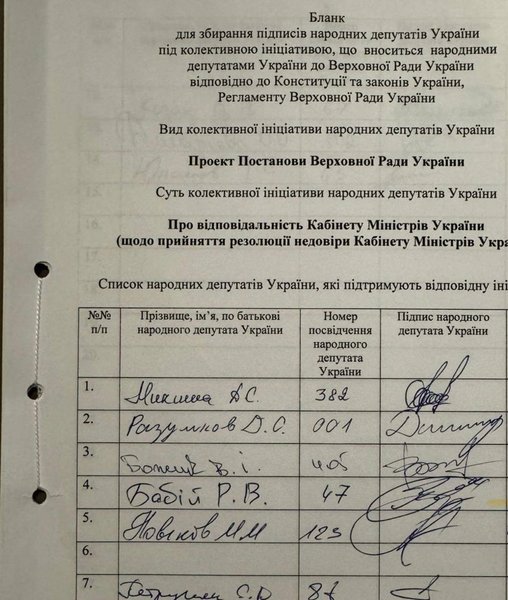 Бланк
для збирання підписів народних депутатів України
під колективною ініціативою, що вноситься народними
депутатами України до Верховної Ради України
відповідно до Конституції та законів України,
Регламенту Верховної Ради України
Вид колективної ініціативи народних депутатів України
Проект Постанови Верховної Ради України
Суть колективної ініціативи народних депутатів України
Про відповідальність Кабінету Міністрів України
(щодо прийняття резолюції недовіри Кабінету Міністрів Укра
Список народних депутатів України, які підтримують відповідну іні
№№ п/п
Прізвище, ім’я, по батькові народного депутата України
Номер посвідчення народного депутата України
Підпис народного депутата України
1. 382
2. Разумков Д.О. 001
3. В.І. 405
4. Бабій Р.В. 47
5. Новіков М М 123
6.
7.